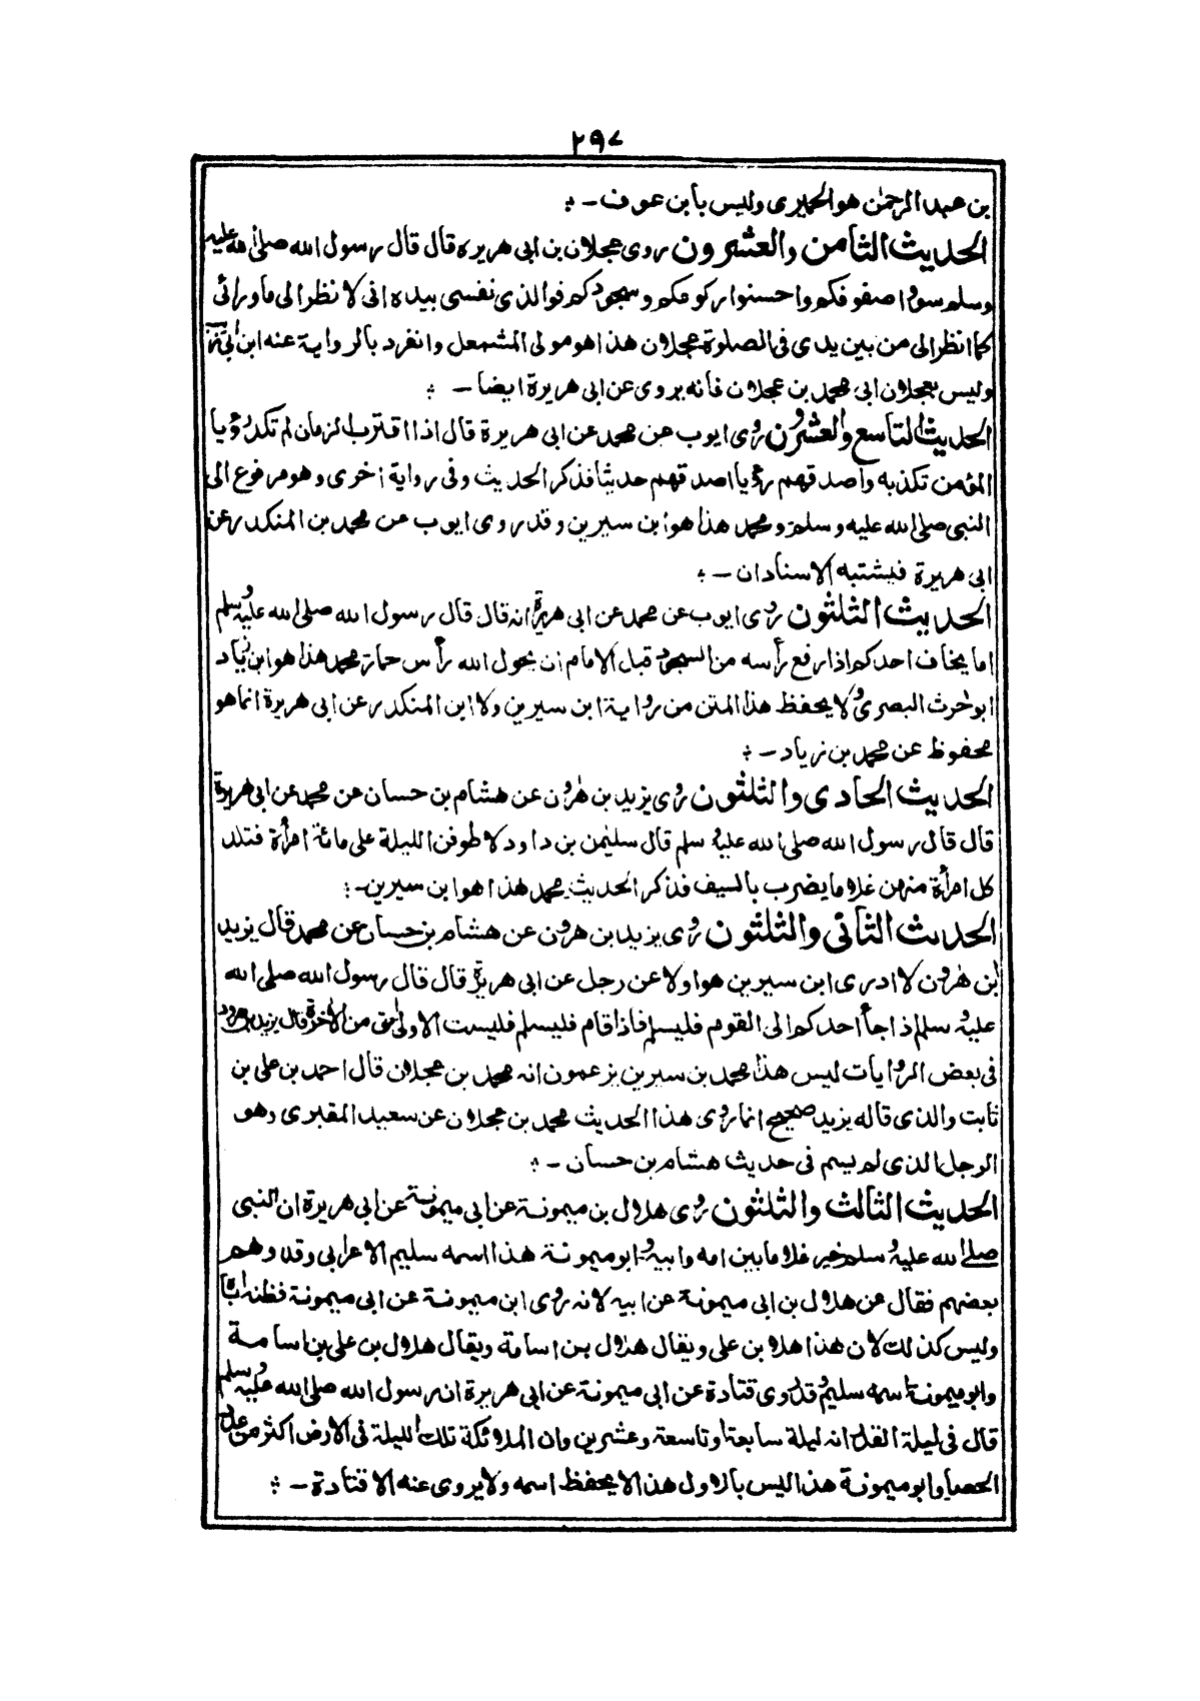 ٢٩٧
بن عبد الرحمٰن هو الحميرى وليس بابن عوف -
الحديث الثامن والعشرون روى عجلان بن ابى هريرة قال قال رسول الله صلى الله عليه
وسلم سووا صفوفكم واحسنوا ركوعكم وسجودكم فوالذى نفسى بيده انى لا نظر الى ما ورائى
كما انظر الى من بين يدى فى الصلوة عجلان هذا هو مولى المشمعل وانفرد بالرواية عنه ابن ابى
وليس بعجلان ابى محمد بن عجلان فانه يروى عن ابى هريرة ايضا -
الحديث التاسع والعشرون روى ايوب عن محمد عن ابى هريرة قال اذا اقترب الزمان لم تكد رؤيا
المؤمن تكذبه واصدقهم رؤيا اصدقهم حديثا فذكر الحديث وفى رواية اخرى وهو مرفوع الى
النبى صلى الله عليه وسلم ومحمد هذا هو ابن سيرين وقد روى ايوب عن محمد بن المنكدر عن
ابى هريرة فيشتبه الاسنادان -
الحديث الثلثون روى ايوب عن محمد عن ابى هريرة انه قال قال رسول الله صلى الله عليه وسلم
اما يخاف احدكم اذا رفع رأسه من السجود قبل الامام ان يحول الله رأس حمار محمد هذا هو ابن زياد
ابو حٰرث البصرى ولا يحفظ هذا المتن من رواية ابن سيرين ولا ابن المنكدر عن ابى هريرة انما هو
محفوظ عن محمد بن زياد -
الحديث الحادى والثلثون روى يزيد بن هٰرون عن هشام بن حسان عن محمد عن ابى هريرة
قال قال رسول الله صلى الله عليه وسلم قال سليمٰن بن داود لا طوفن الليلة على مائة امرأة فتلد
كل امرأة منهن غلاما يضرب بالسيف فذكر الحديث محمد هذا هو ابن سيرين -
الحديث الثانى والثلثون روى يزيد بن هرون عن هشام بن حسان عن محمد قال يزيد
بن هٰرون لا ادرى ابن سيرين هو اولا عن رجل عن ابى هريرة قال قال رسول الله صلى الله
عليه وسلم اذا جاء احدكم الى القوم فليسلم فاذا قام فليسلم فليست الاولى احق من الاخرة قال يزيد بن هرون
فى بعض الروايات ليس هذا محمد بن سيرين يزعمون انه محمد بن عجلان قال احمد بن على بن
ثابت والذى قاله يزيد صحيح انما روى هذا الحديث محمد بن عجلان عن سعيد المقبرى وهو
الرجل الذى لم يسم فى حديث هشام بن حسان -
الحديث الثالث والثلثون روى هلال بن ميمونة عن ابى ميمونة عن ابى هريرة ان النبى
صلى الله عليه وسلم خير غلاما بين امه وابيه ابو ميمونة هذا اسمه سليم الاعرابى وقد وهم
بعضهم فقال عن هلال بن ابى ميمونة عن ابيه لانه روى ابن ميمونة عن ابى ميمونة فظنه اباه
وليس كذلك لان هذا هلا بن على ويقال هلال بن اسامة ويقال هلال بن على بن اسامة
وابو ميمونة اسمه سليم وقد روى قتادة عن ابى ميمونة عن ابى هريرة ان رسول الله صلى الله عليه وسلم
قال فى ليلة القدر انه ليلة سابعة او تاسعة وعشرين وان الملائكة تلك الليلة فى الارض اكثر من عدد
الحصا وابو ميمونة هذا ليس بالاول هذا لا يحفظ اسمه ولا يروى عنه الا قتادة -